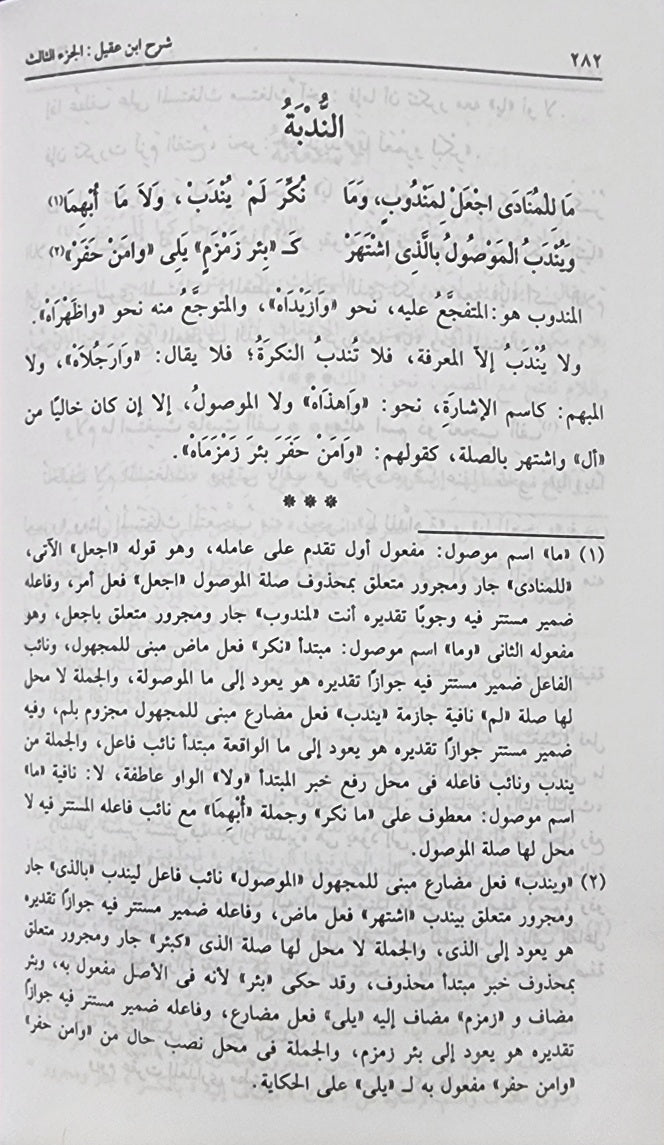 ٢٨٢
شرح ابن عقيل : الجزء الثالث
النُّدْبَةُ
مَا لِلْمُنَادَى اجْعَلْ لِمَنْدُوبٍ، وَمَا نُكِّرَ لَمْ يُنْدَبْ، وَلَا مَا أُبْهِمَا(١)
وَيُنْدَبُ الْمَوْصُولُ بِالَّذِى اشْتَهَرْ كَـ «بِئْرِ زَمْزَمٍ» يَلِى «وامَنْ حَفَرْ»(٢)
المندوب هو: المتفجَّعُ عليه، نحو «وَازَيْدَاهْ»، والمتوجَّعُ منه نحو «واظَهْرَاهْ».
ولا يُنْدَبُ إلاَّ المعرفة، فلا تُندبُ النكرَةُ؛ فلا يقال: «وَارَجُلَاهْ»، ولا
المبهم: كاسم الإشارَةِ، نحو: «وَاهذَاهْ» ولا الموصولُ، إلا إن كان خاليًا من
«أل» واشتهر بالصلة، كقولهم: «وَامَنْ حَفَرَ بئرَ زَمْزَمَاهْ».
***
(١) «ما» اسم موصول: مفعول أول تقدم على عامله، وهو قوله «اجعل» الآتى،
«للمنادى» جار ومجرور متعلق بمحذوف صلة الموصول «اجعل» فعل أمر، وفاعله
ضمير مستتر فيه وجوبًا تقديره أنت «لمندوب» جار ومجرور متعلق باجعل، وهو
مفعوله الثانى «وما» اسم موصول: مبتدأ «نكر» فعل ماض مبنى للمجهول، ونائب
الفاعل ضمير مستتر فيه جوازًا تقديره هو يعود إلى ما الموصولة، والجملة لا محل
لها صلة «لم» نافية جازمة «يندب» فعل مضارع مبنى للمجهول مجزوم بلم، وفيه
ضمير مستتر جوازًا تقديره هو يعود إلى ما الواقعة مبتدأ نائب فاعل، والجملة من
يندب ونائب فاعله فى محل رفع خبر المبتدأ «ولا» الواو عاطفة، لا: نافية «ما»
اسم موصول: معطوف على «ما نكر» وجملة «أُبْهِمَا» مع نائب فاعله المستتر فيه لا
محل لها صلة الموصول.
(٢) «ويندب» فعل مضارع مبنى للمجهول «الموصول» نائب فاعل ليندب «بالذى» جار
ومجرور متعلق بيندب «اشتهر» فعل ماض، وفاعله ضمير مستتر فيه جوازًا تقديره
هو يعود إلى الذى، والجملة لا محل لها صلة الذى «كبئر» جار ومجرور متعلق
بمحذوف خبر مبتدأ محذوف، وقد حكى «بئر» لأنه فى الأصل مفعول به، وبئر
مضاف و «زمزم» مضاف إليه «يلى» فعل مضارع، وفاعله ضمير مستتر فيه جوازًا
تقديره هو يعود إلى بئر زمزم، والجملة فى محل نصب حال من «وامن حفر»
«وامن حفر» مفعول به لـ «يلى» على الحكاية.